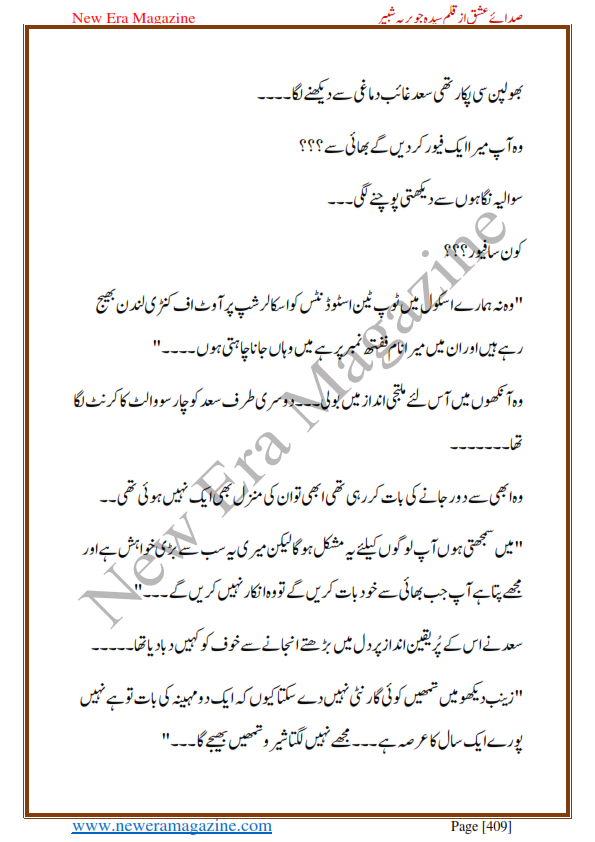 New Era Magazine
صدائے عشق از قلم سیدہ جویریہ شبیر
بھولپن سی پکار تھی سعد غائب دماغی سے دیکھنے لگا۔۔۔۔
وہ آپ میرا ایک فیور کردیں گے بھائی سے ؟؟؟
سوالیہ نگاہوں سے دیکھتی پوچنے لگی۔۔۔
کون سا فیور؟؟؟
"وہ نہ ہمارے اسکول میں ٹوپ ٹین اسٹوڈنٹس کو اسکالرشپ پر آوٹ اف کنڑی لندن بھیج
رہے ہیں اور ان میں میرا نام ففتھ نمبر پر ہے میں وہاں جانا چاہتی ہوں۔۔۔۔"
وہ آنکھوں میں آس لئے ملتجی انداز میں بولی۔۔۔دوسری طرف سعد کو چار سو والٹ کا کرنٹ لگا
تھا۔۔۔۔۔۔۔
وہ ابھی سے دور جانے کی بات کر رہی تھی ابھی تو ان کی منزل بھی ایک نہیں ہوئی تھی۔۔
"میں سمجھتی ہوں آپ لوگوں کیلئے یہ مشکل ہوگا لیکن میری یہ سب سے بڑی خواہش ہے اور
مجھے پتا ہے آپ جب بھائی سے خود بات کریں گے تو وہ انکار نہیں کریں گے۔۔۔"
سعد نے اس کے پُریقین انداز پر دل میں بڑھتے انجانے سے خوف کو کہیں دبا دیا تھا۔۔۔۔۔
"زینب دیکھو میں تمھیں کوئی گارنٹی نہیں دے سکتا کیوں کہ ایک دو مہینہ کی بات تو ہے نہیں
پورے ایک سال کا عرصہ ہے۔۔۔مجھے نہیں لگتا شیرو تمھیں بھیجے گا۔۔۔"
New Era Magazine
www.neweramagazine.com
Page [409]